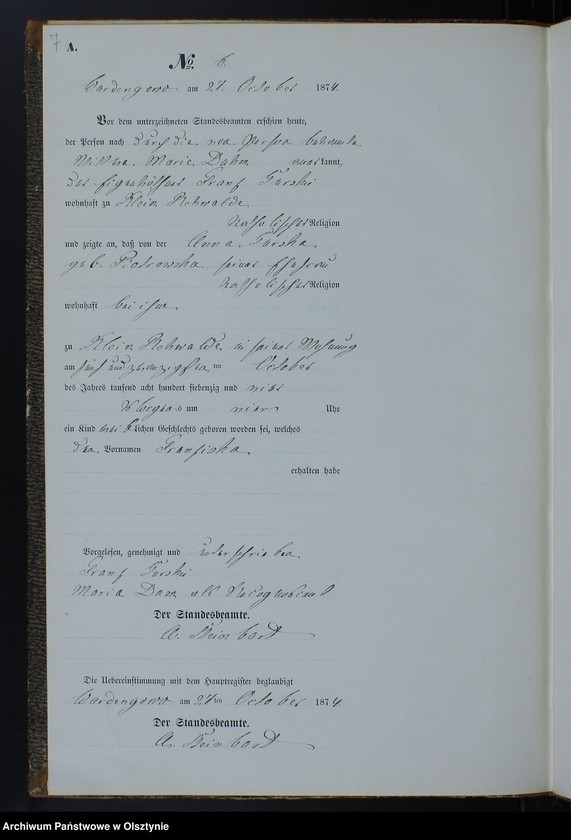 7 A.
No. 6.
Wardengowo am 27. October 1874.
Vor dem unterzeichneten Standesbeamten erschien heute,
der Person nach durch die von Person bekannte
Wittwe Marie Dahm anerkannt,
der Eigenkäthner Franz Turski
wohnhaft zu Klein Rehwalde
katholischer Religion
und zeigte an, daß von der Anna Turska
geb. Piotrowska, seiner Ehefrau
katholischer Religion
wohnhaft bei ihm,
zu Klein Rehwalde in seiner Wohnung
am fünf und zwanzigsten ten October
des Jahres tausend acht hundert siebenzig und vier
Morgens um vier Uhr
ein Kind weiblichen Geschlechts geboren worden sei, welches
den Vornamen Franziska
erhalten habe
Vorgelesen, genehmigt und unterschrieben
Franz Turski
Maria Dam als Recognoscent
Der Standesbeamte.
A. Reinbard
Die Uebereinstimmung mit dem Hauptregister beglaubigt
Wardengowo am 27 ten October 1874.
Der Standesbeamte.
A. Reinbard
Archiwum Państwowe w Olsztynie